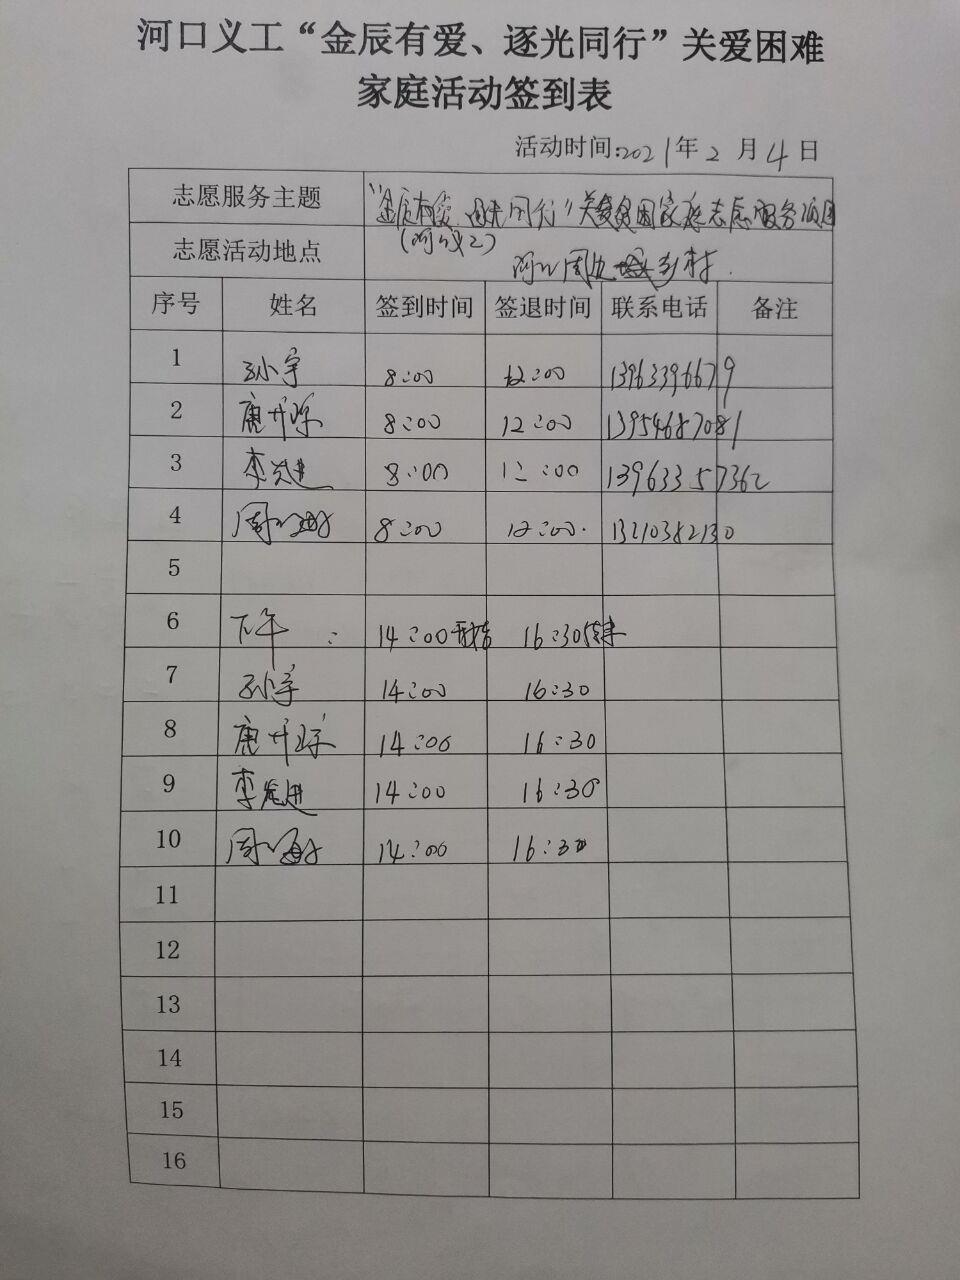 河口义工“金辰有爱、逐光同行”关爱困难
家庭活动签到表
活动时间:2021年2月4日
志愿服务主题 “金辰有爱、逐光同行”关爱贫困家庭志愿服务项目
志愿活动地点 河口周边乡村.
序号 姓名 签到时间 签退时间 联系电话 备注
1 孙宇 8:00 12:00 13963396679
2 唐开 8:00 12:00 13954687081
3 李先进 8:00 12:00 13963357362
4 周 8:00 12:00. 13210382130
5
6 下午: 14:00开始 16:30结束
7 孙宇 14:00 16:30
8 唐开 14:00 16:30
9 李先进 14:00 16:30
10 周 14:00 16:30
11
12
13
14
15
16